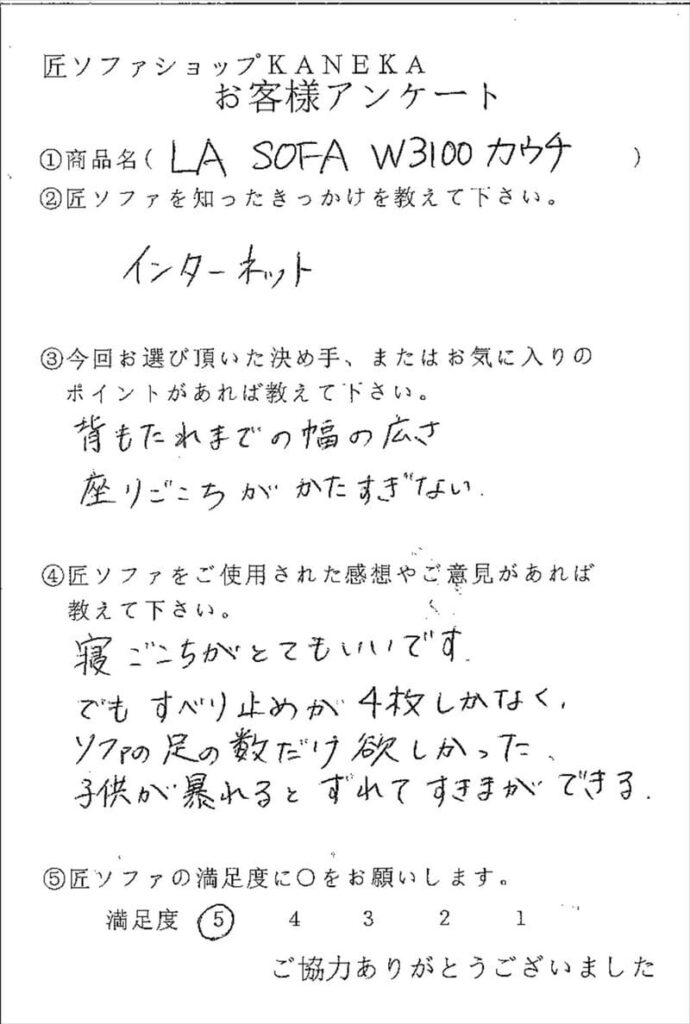 匠ソファショップKANEKA
お客様アンケート
①商品名( LA SOFA W3100 カウチ )
②匠ソファを知ったきっかけを教えて下さい。
インターネット
③今回お選び頂いた決め手、またはお気に入りの
ポイントがあれば教えて下さい。
背もたれまでの幅の広さ
座りごこちがかたすぎない.
④匠ソファをご使用された感想やご意見があれば
教えて下さい。
寝ごこちがとてもいいです.
でもすべり止めが4枚しかなく、
ソファの足の数だけ欲しかった、
子供が暴れるとずれてすきまができる.
⑤匠ソファの満足度に○をお願いします。
満足度 ⑤ 4 3 2 1
ご協力ありがとうございました